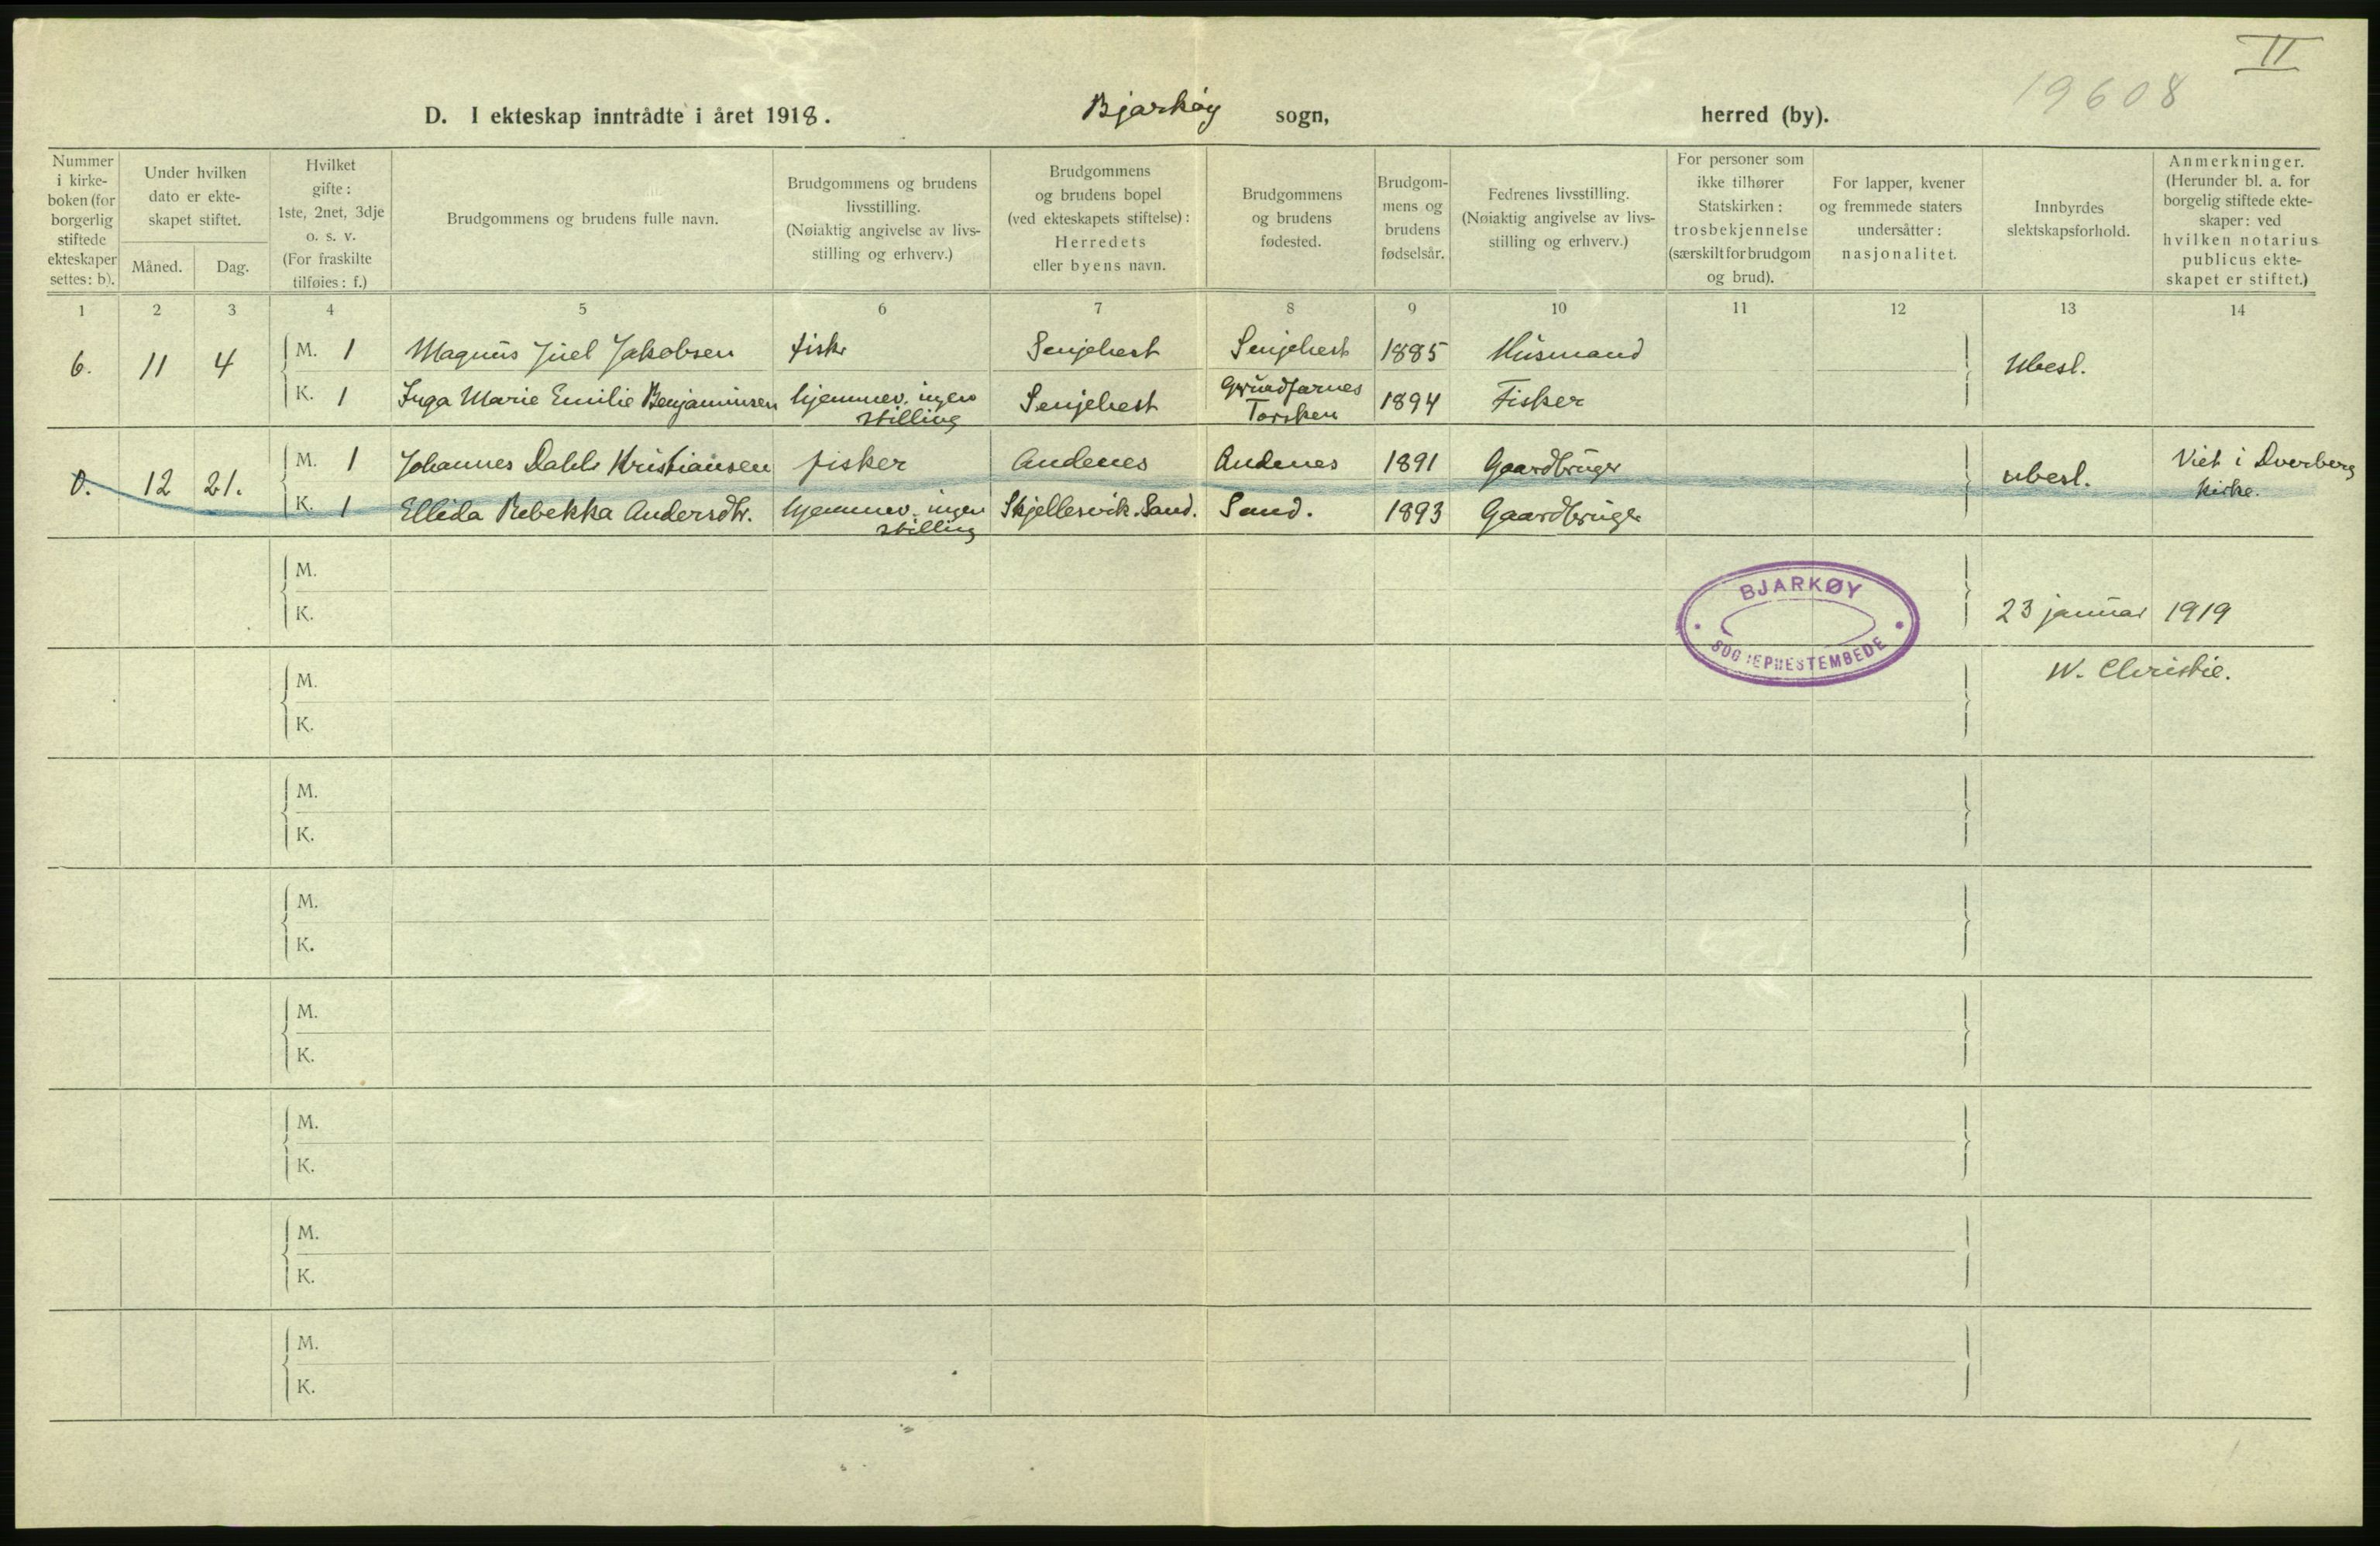 II
19608
D. I ekteskap inntrådte i året 1918. Bjarkøy sogn, herred (by).
Nummer i kirkeboken (for borgerlig stiftede ekteskaper settes: b).
Under hvilken dato er ekteskapet stiftet.
Måned. Dag.
Hvilket gifte: 1ste, 2net, 3dje o. s. v. (For fraskilte tilføies: f.)
Brudgommens og brudens fulle navn.
Brudgommens og brudens livsstilling. (Nøiaktig angivelse av livsstilling og erhverv.)
Brudgommens og brudens bopel (ved ekteskapets stiftelse): Herredets eller byens navn.
Brudgommens og brudens fødested.
Brudgommens og brudens fødselsår.
Fedrenes livsstilling. (Nøiaktig angivelse av livsstilling og erhverv.)
For personer som ikke tilhører Statskirken: trosbekjennelse (særskilt for brudgom og brud).
For lapper, kvener og fremmede staters undersåtter: nasjonalitet.
Innbyrdes slektskapsforhold.
Anmerkninger. (Herunder bl. a. for borgelig stiftede ekteskaper: ved hvilken notarius publicus ekteskapet er stiftet.)
1 2 3 4 5 6 7 8 9 10 11 12 13 14
6. 11 4 M. 1 Magnus Juel Jakobsen fisker Senjehest Senjehest 1885 Husmand Ubesl.
K. 1 Inga Marie Emilie Benjaminsen hjemmev. ingen stilling Senjehest Grundfarnes Torsken 1894 Fisker
0. 12 21. M. 1 Johannes Dahl Kristiansen fisker Andenes Andenes 1891 Gaardbruger ubesl. Viet i Dverberg kirke.
K. 1 Ellida Rebekka Andersdtr. hjemmev. ingen stilling Skjellesvik. Sand. Sand. 1893 Gaardbruger
M.
K.
BJARKØY
SOGNEPRESTEMBEDE
23 januar 1919
W. Christie.
M.
K.
M.
K.
M.
K.
M.
K.
M.
K.
M.
K.
M.
K.